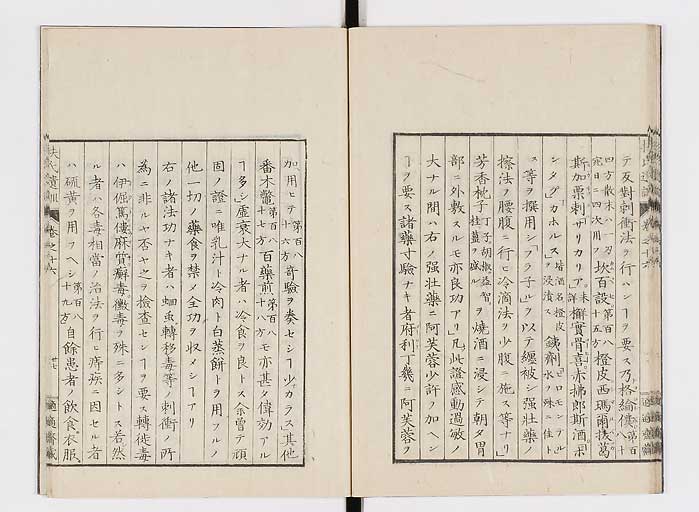 テ反對刺衝法ヲ行ハンヿヲ要ス乃格綸僕第百八十
四方散木ハ一刃ヲ宛日ニ四次用フ坎百設第百八十五方橙皮西瑪爾抜葛
斯加栗刺サリカリア詳未檞實骨喜赤拂郎斯酒
シタグガホルス塔酒名橙皮ヲ浸漬ス鐵劑ピロモンフル水ヲ殊ニ佳トス
等ヲ撰用シブラ子ルヲ以テ纏被シ强壯藥ノ
擦法ヲ腰腹ニ行ヒ冷滴法ヲ少腹ニ施ス等ナリ
芳香枕子丁子胡椒益智桂薑ヲ盛ルヲ燒酒ニ浸シテ朝夕胃
部ニ外敷スルモ亦良功アリ凡此證感動過敏ノ
大ナル間ハ右ノ强壯藥ニ阿芙蓉少許ヲ加ヘン
ヿヲ要ス諸藥寸驗ナキ者府利丁幾ニ阿芙蓉ヲ
加用ヒテ第百八十六方奇驗ヲ奏セシヿ少カラス其他
番木鼈第百八十七方百藥煎第百八十八方モ亦甚タ偉効アル
ヿ多シ虚衰大ナル者ハ冷食ヲ良トス余曽テ頑
固ノ證ニ唯乳汁ト冷肉ト白蒸餅トヲ用フルノ
他一切ノ藥食ヲ禁メ全功ヲ収メシヿアリ
右ノ諸法功ナキ者ハ蛔虫轉移毒等ノ刺衝ノ所
為ニ非ルヤ否ヤ之ヲ檢査センヿヲ要ス轉徙毒
ハ伊倔篤僂麻質癬毒黴毒ヲ殊ニ多シトス若然
ル者ハ各毒相當ノ治法ヲ行ヒ痔疾ニ因セル者
ハ硫黄ヲ用フヘシ第百八十九方自餘患者ノ飲食衣服
扶氏遺訓 卷之十六 廿七 適適齋藏